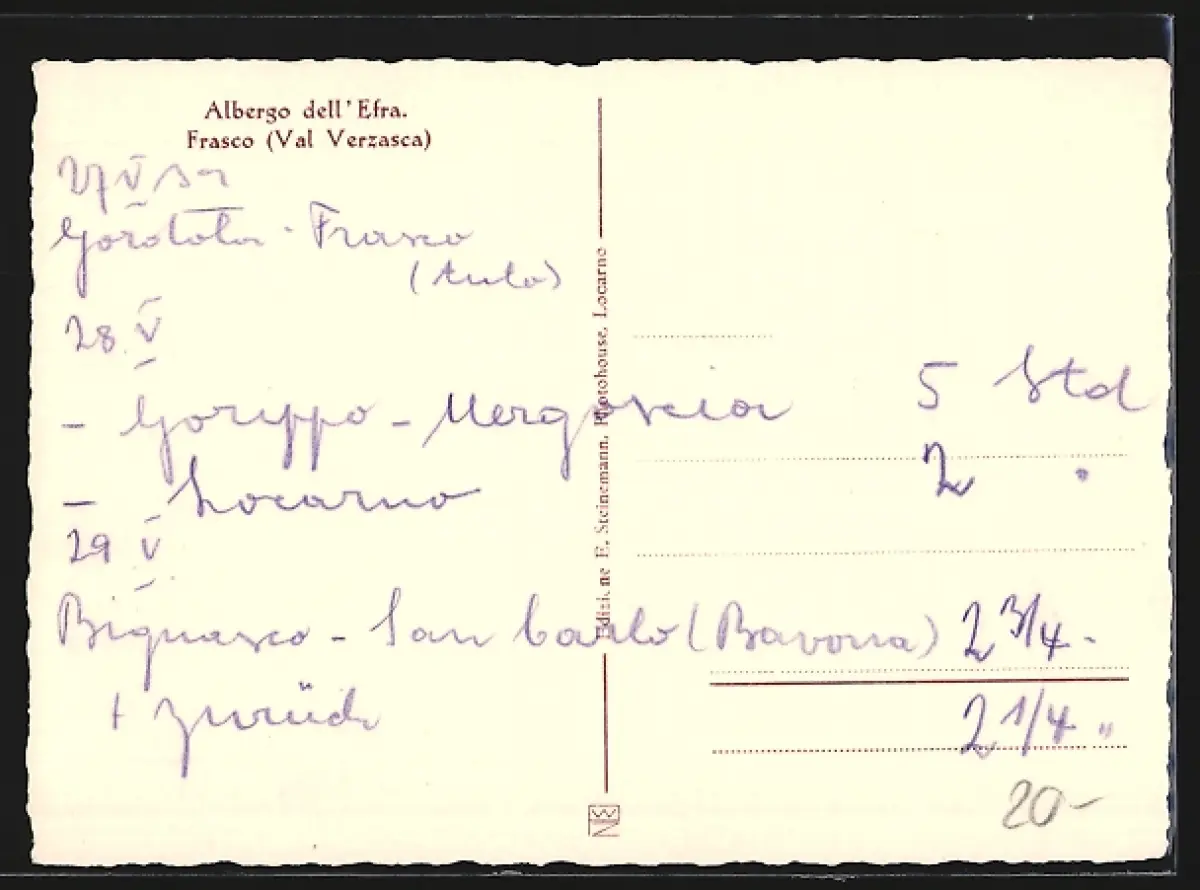 Albergo dell' Efra.
Frasco (Val Verzasca)
27 V
Gordola - Frasco
(Auto)
28. V
- Corippo - Mergoscia 5 Std
- Locarno 2 "
29 V
Bignasco - San Carlo (Bavona) 2 3/4 -
+ zurück 2 1/4 "
20-
Edizione E. Steinemann, Photohouse, Locarno